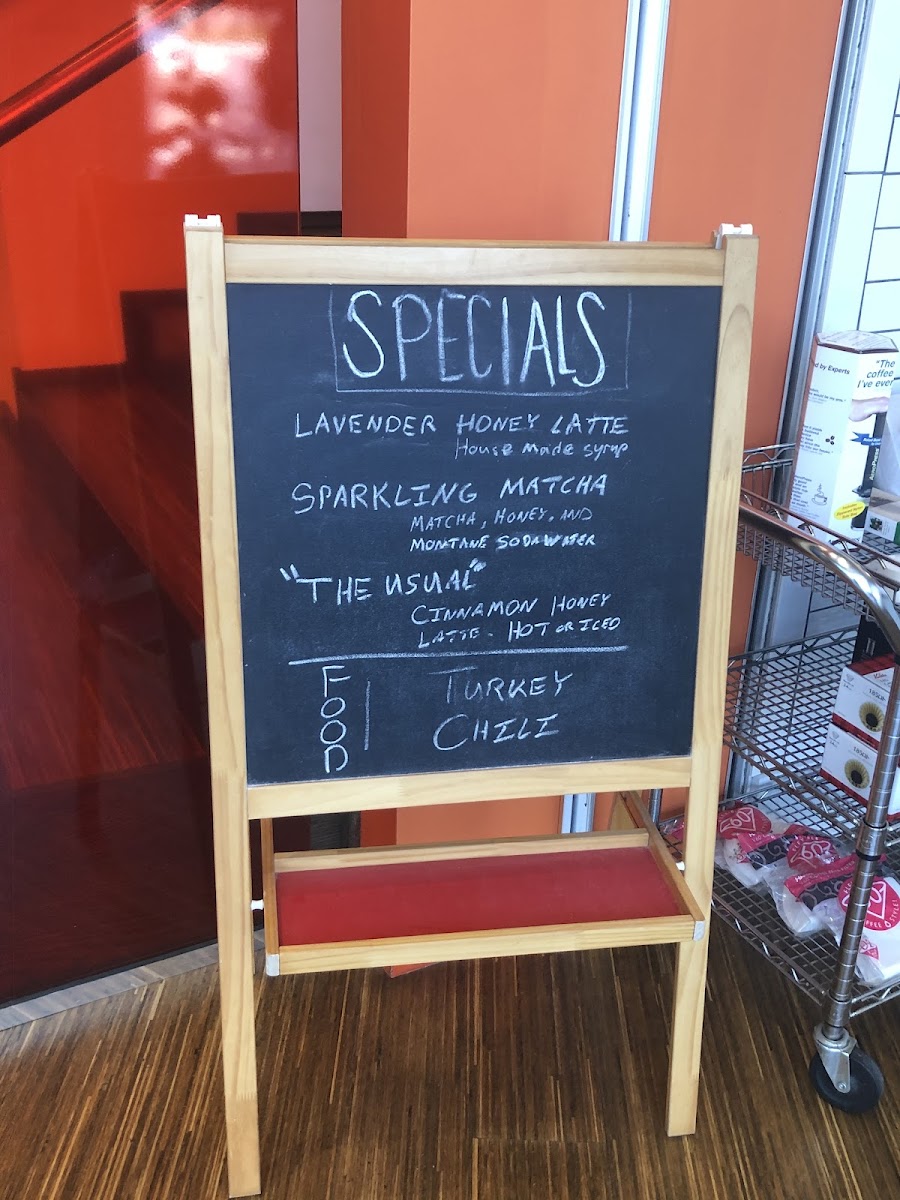 SPECIALS
LAVENDER HONEY LATTE
House Made syrup
SPARKLING MATCHA
MATCHA, HONEY, AND
MONTANE SODA WATER
"THE USUAL"
CINNAMON HONEY
LATTE - HOT OR ICED
FOOD
TURKEY
CHILI
d by Experts
"The
coffee
I've ever
185
60
60
60